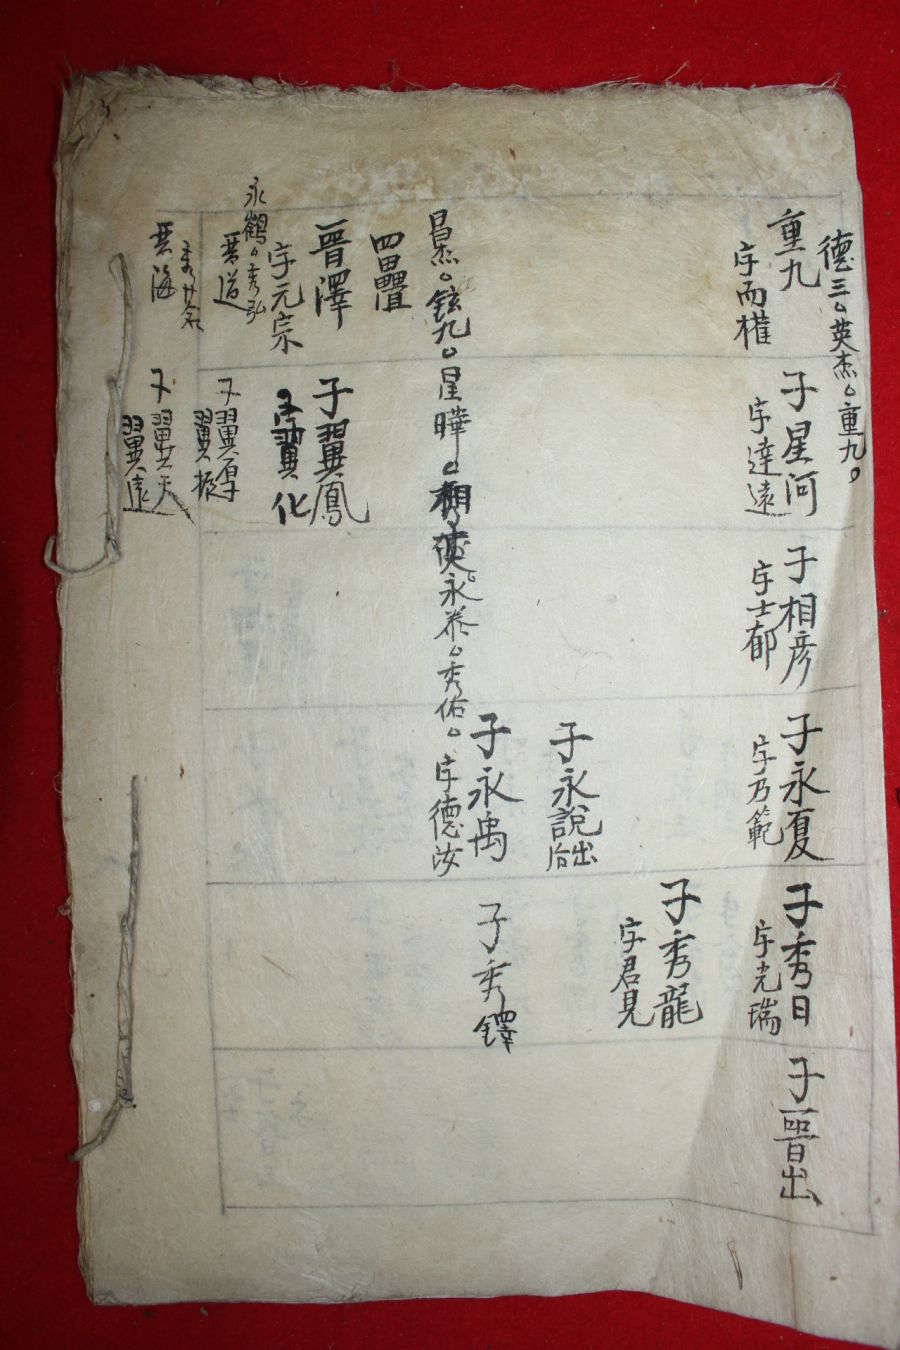 德三。英杰。重九。
重九
字而權
子星河
字達遠
子相彦
字士郁
子永夏
字乃範
子秀日
字光瑞
子晋出
子秀龍
字君見
子永說
后出
子永禹
字德汝
子秀鐸
昌杰。鉉九。星曄。相奎。永泰。秀佑。
四疊
晋澤
字元宗
子翼鳳
子翼化
永鶴。秀弘
晋道
子翼厚
翼振
晋海
子翼天
翼遠